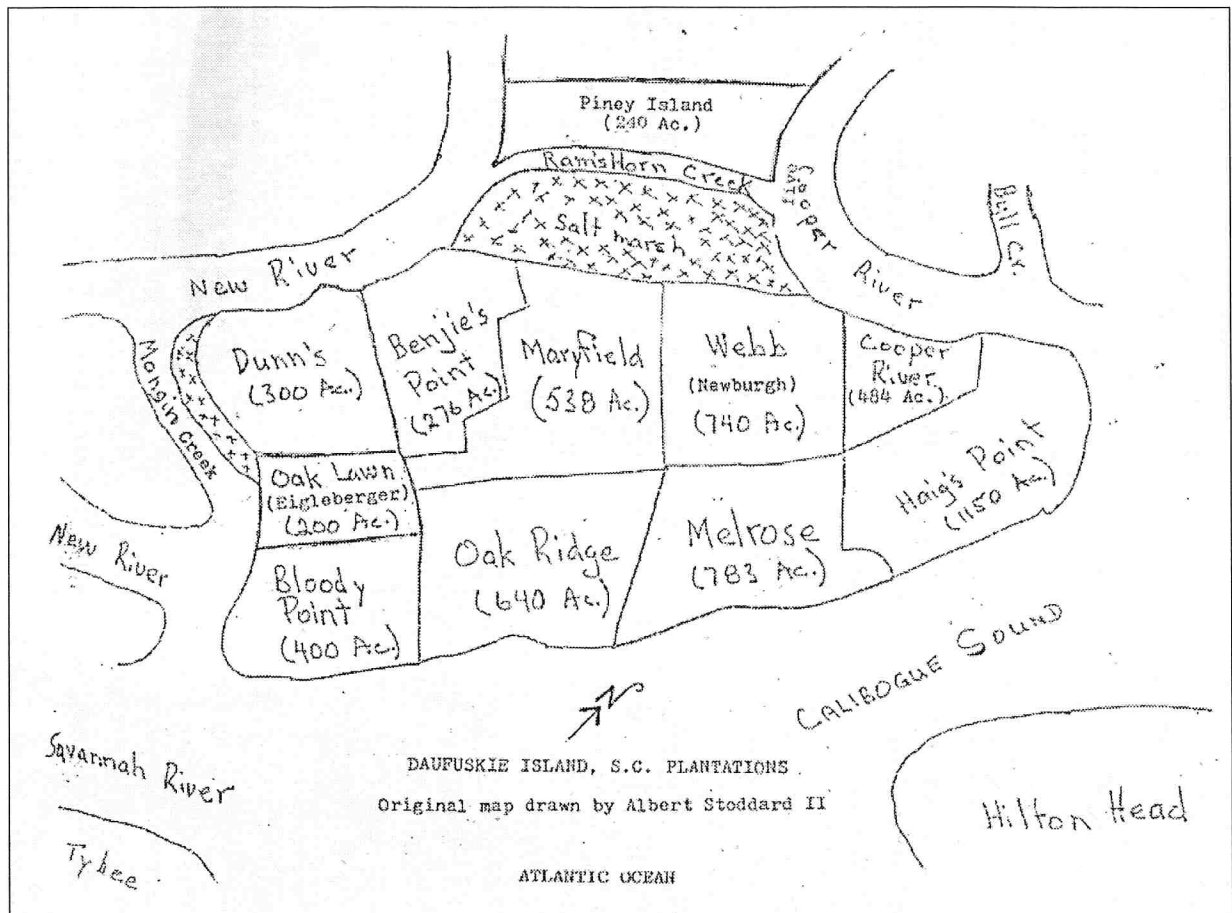 Piney Island
(240 Ac.)
Ram's Horn Creek
Salt marsh
Cooper River
Bull Cr.
New River
Mongin Creek
Dunn's
(300 Ac.)
Benjie's
Point
(276 Ac.)
Maryfield
(538 Ac.)
Webb
(Newburgh)
(740 Ac.)
Cooper
River
(484 Ac.)
Haig's Point
(1150 Ac.)
Oak Lawn
(Eigleberger)
(200 Ac.)
New River
Bloody
Point
(400 Ac.)
Oak Ridge
(640 Ac.)
Melrose
(783 Ac.)
CALIBOGUE SOUND
N
Savannah River
Tybee
DAUFUSKIE ISLAND, S.C. PLANTATIONS
Original map drawn by Albert Stoddard II
ATLANTIC OCEAN
Hilton Head